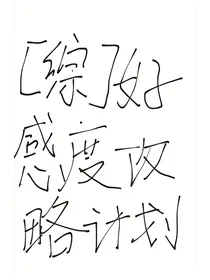 [综]好
感度攻
略计划